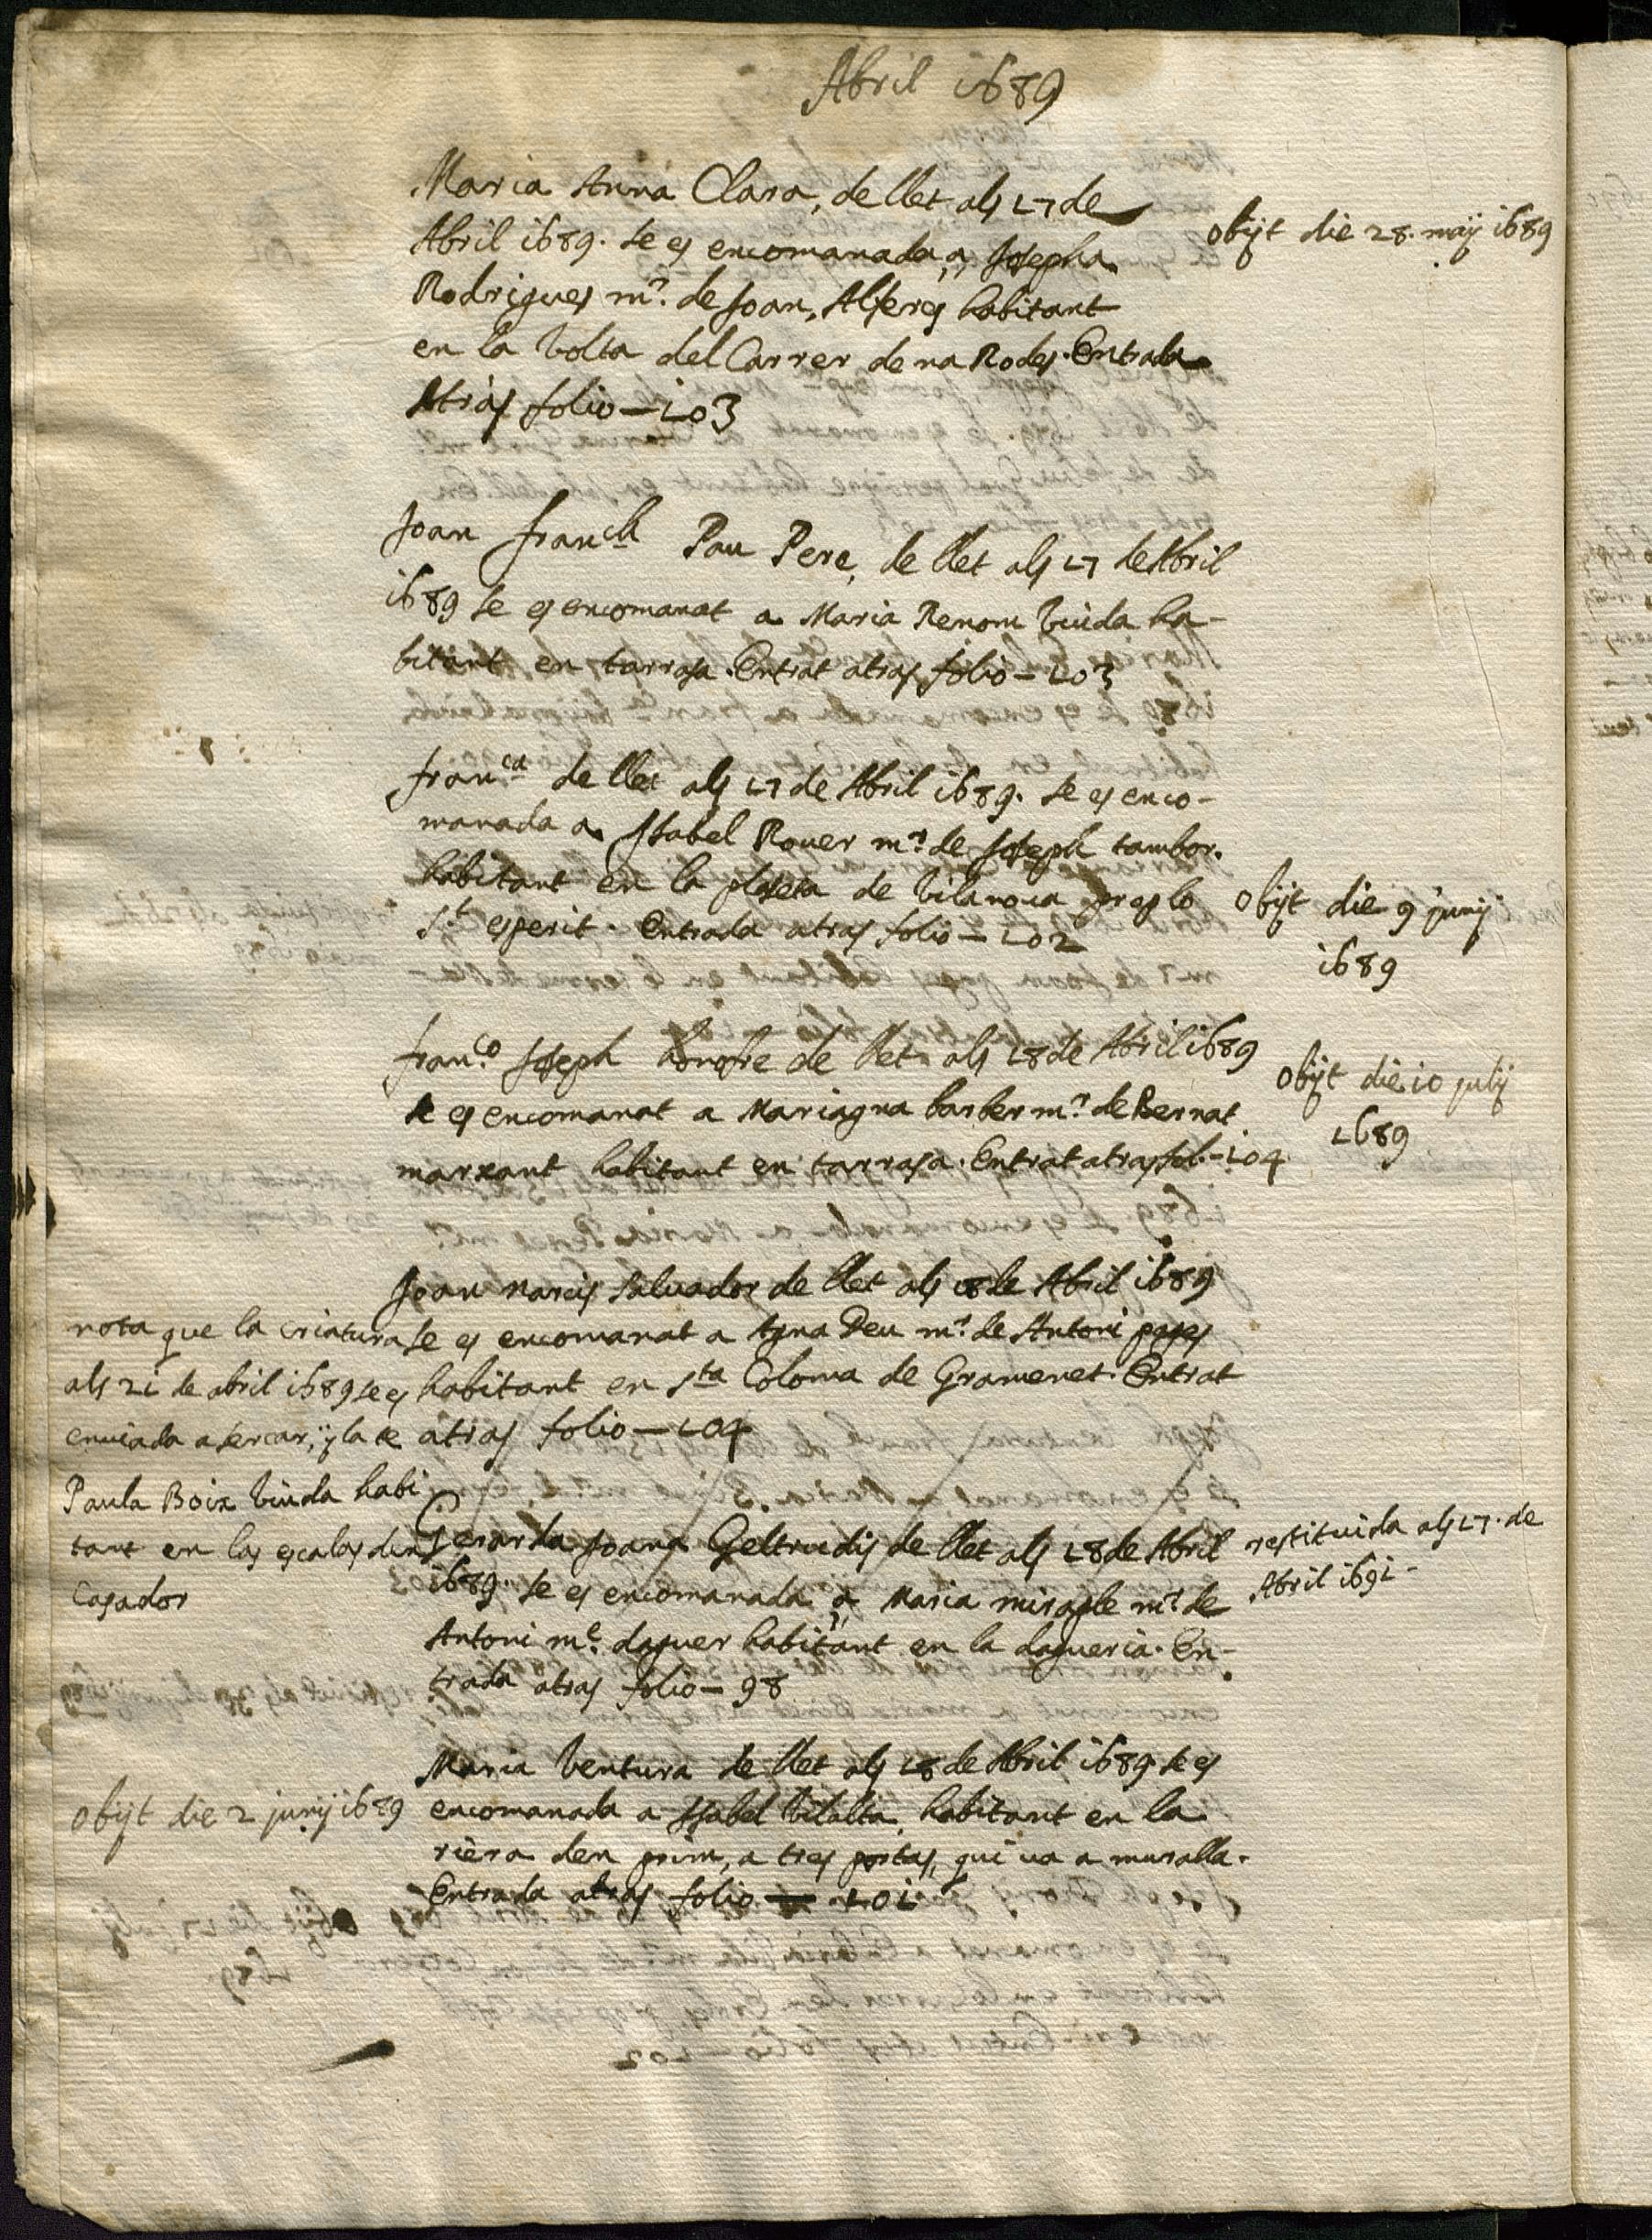 Abril 1689
Maria Anna Clara, de llet als 17 de
Abril 1689. se es encomanada a Josepha
Rodrigues mr. de Joan, Alferes habitant
en la volta del Carrer de na Rodes. Entrada
Atras folio - 103
Obijt die 28. maij 1689
Joan franch Pau Pere, de llet als 17 de Abril
1689 se es encomanat a Maria Renom viuda ha-
bitant en tarrasa. Entrat atras folio - 103
franca de llet als 17 de Abril 1689. se es enco-
manada a Isabel Rouer mr. de Joseph tambor.
habitant en la plaseta de vilanova pres lo
St esperit. Entrada atras folio - 102
Obijt die 9 junij
1689
franco Joseph honofre de llet als 18 de Abril 1689
se es encomanat a Mariagna barber mr. de Bernat
marxant habitant en tarrasa. Entrat atras fol. - 104
Obijt die 10 julij
1689
Joan Narcis Saluador de llet als 18 de Abril 1689
se es encomanat a Agna Deu mr. de Antoni pages
habitant en sta Coloma de Gramenet. Entrat
atras folio - 104
nota que la criatura
als 21 de abril 1689 se es
enviada a sercar, y la te
Paula Boix viuda habi
tant en las escalas den
Casador
Gerarda Joana Geltrudis de llet als 18 de Abril
1689. se es encomanada a Maria miracle mr. de
Antoni me. daguer habitant en la dagueria. En-
trada atras folio - 98
restituida als 17. de
Abril 1691 -
Maria Ventura de llet als 18 de Abril 1689. se es
encomanada a Isabel vilalta, habitant en la
riera den prim, a tres portas, qui va a muralla.
Entrada atras folio - 101
Obijt die 2 junij 1689